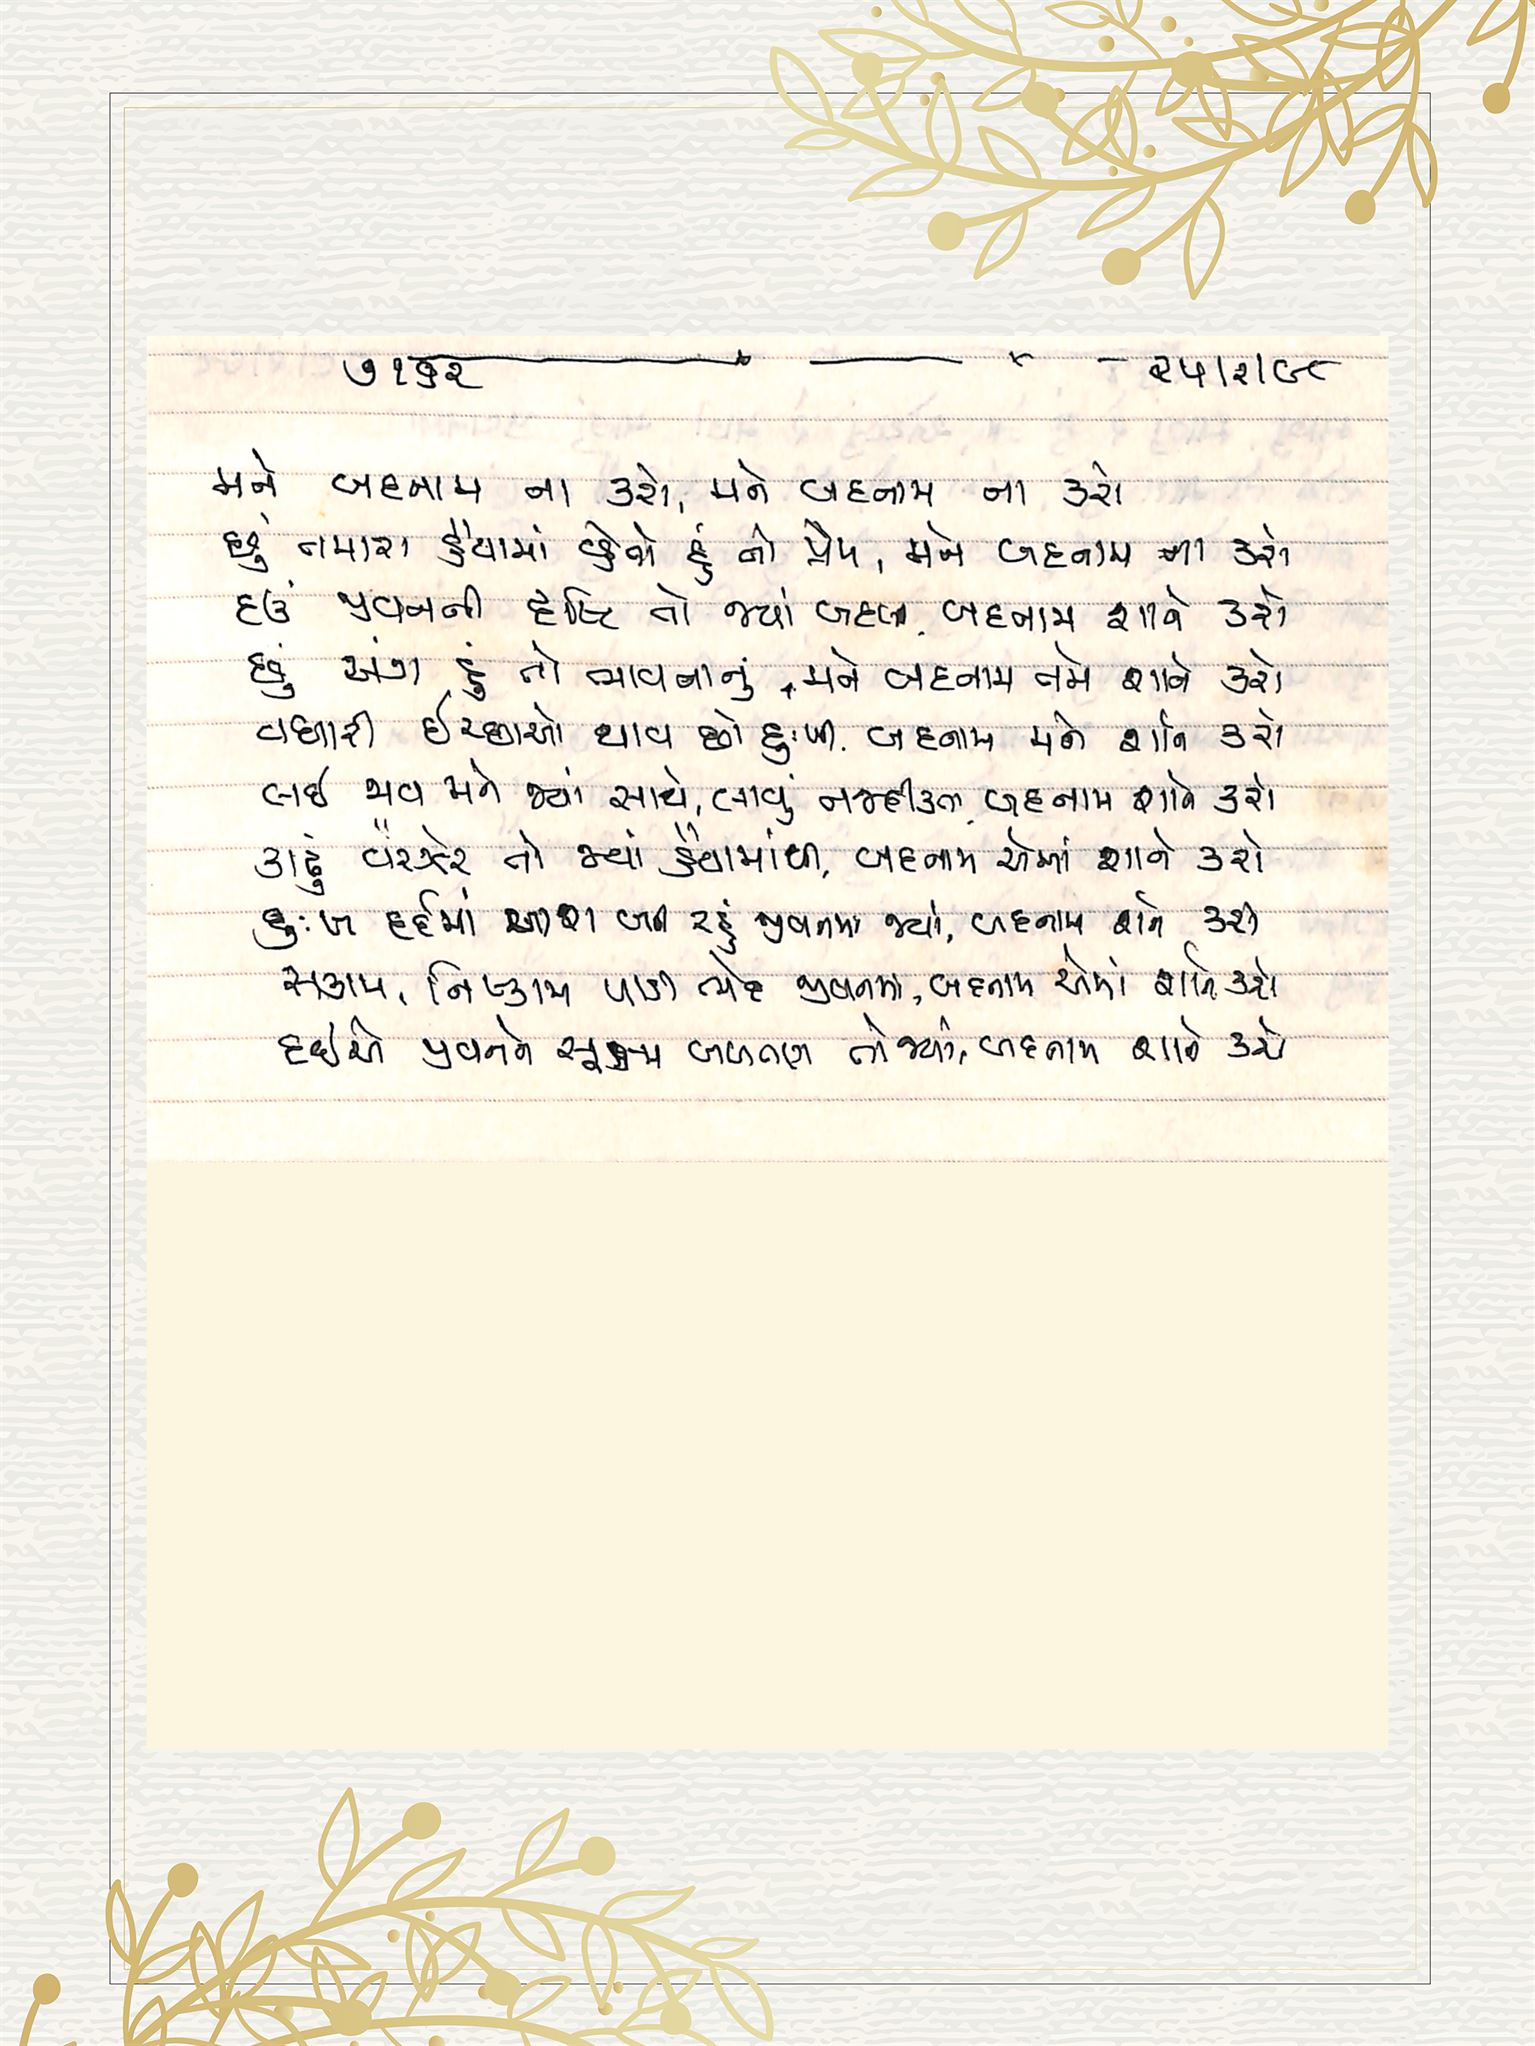 ૭૧૭૨ ૨૫/૨/૯૮
મને બદનામ ના કરો, મને બદનામ ના કરો
છું તમારા હૈયામાં છુપો હું તો પ્રેમ, મને બદનામ ના કરો
દઉં જીવનની દૃષ્ટિ તો જ્યાં બદલી, બદનામ શાને કરો
છું અંગ હું તો ભાવનાનું, મને બદનામ તમે શાને કરો
વધારી ઈચ્છાઓ થાવ છો દુઃખી, બદનામ મને શાને કરો
લઈ જાવ મને જ્યાં સાથે, લાવું નજદીકતા, બદનામ શાને કરો
કાઢું વૈરઝેર તો જ્યાં હૈયામાંથી, બદનામ એમાં શાને કરો
દુઃખ દર્દમાં આશરા બની રહું જીવનમાં જ્યાં, બદનામ શાને કરો
સકામ, નિષ્કામ પાડી ભેદ જીવનમાં, બદનામ એમાં શાને કરો
દઈએ જીવનને સૂક્ષ્મ બળતણ તો જ્યાં, બદનામ શાને કરો